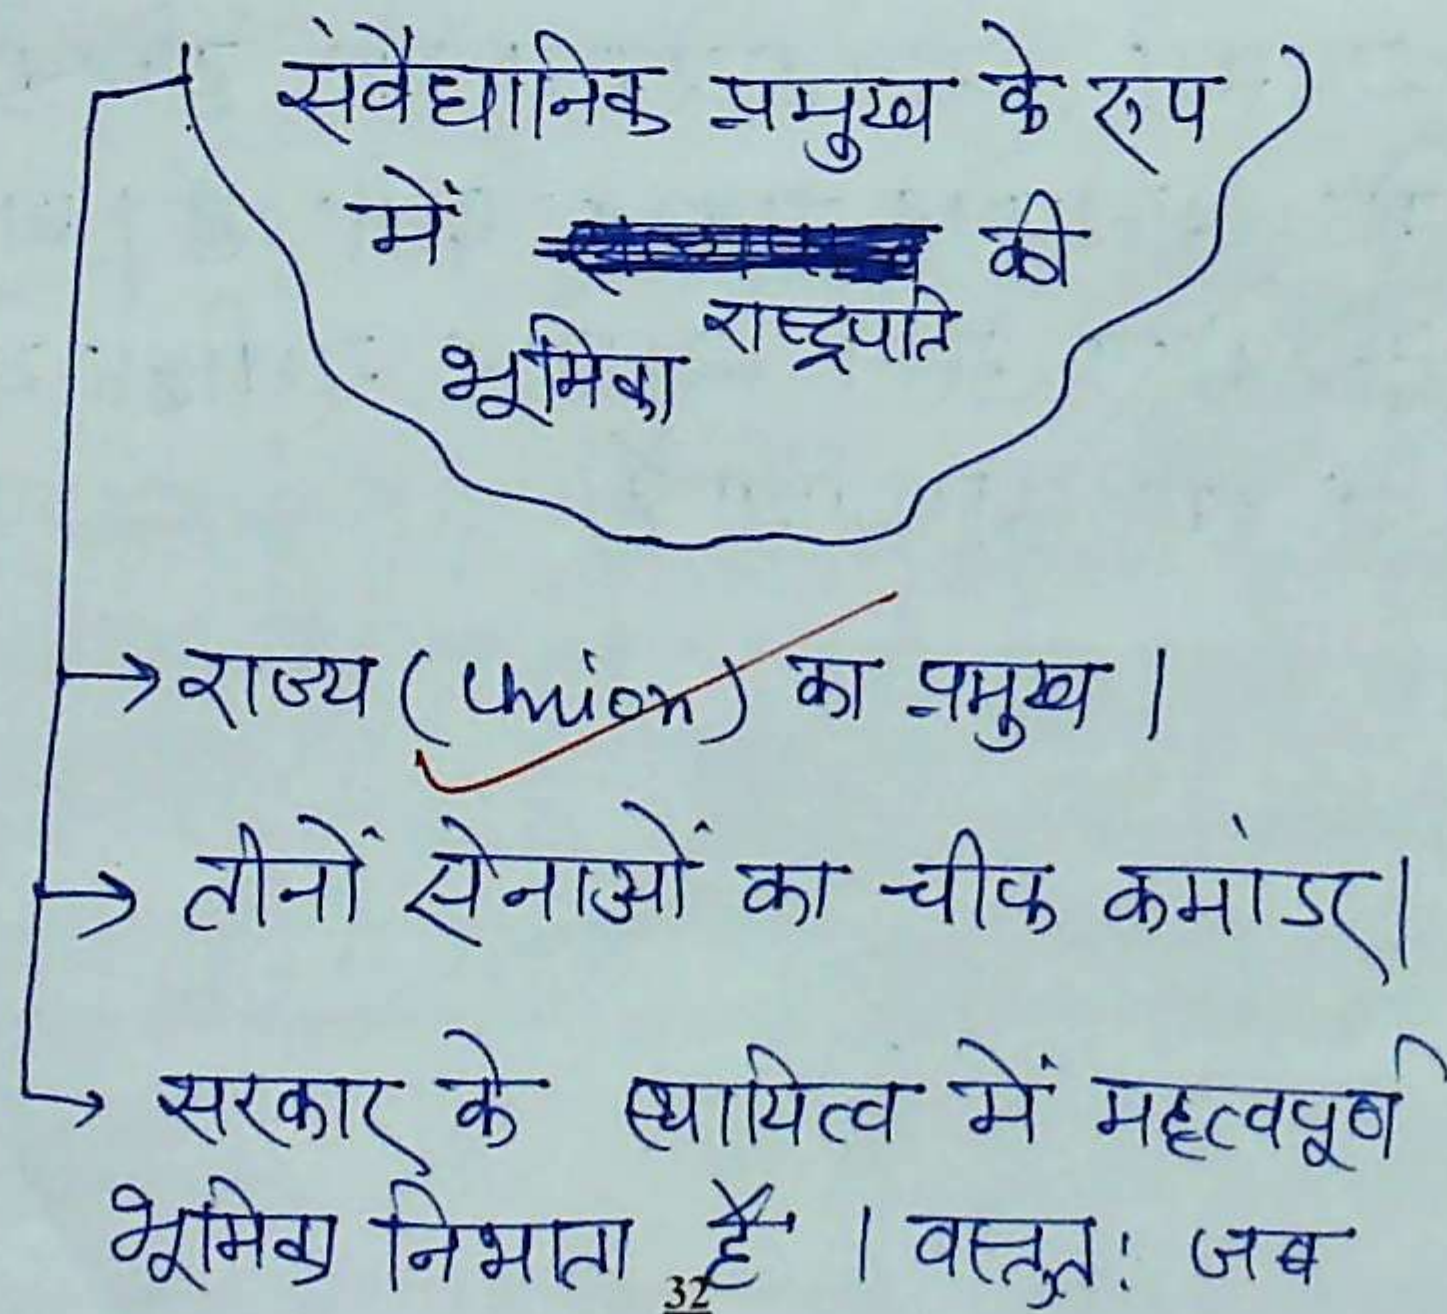 संवैधानिक प्रमुख के रूप
में की
राष्ट्रपति
भूमिका
→ राज्य (Union) का प्रमुख।
→ तीनों सेनाओं का चीफ कमांडर।
→ सरकार के स्थायित्व में महत्वपूर्ण
भूमिका निभाता है। वस्तुत: जब
32